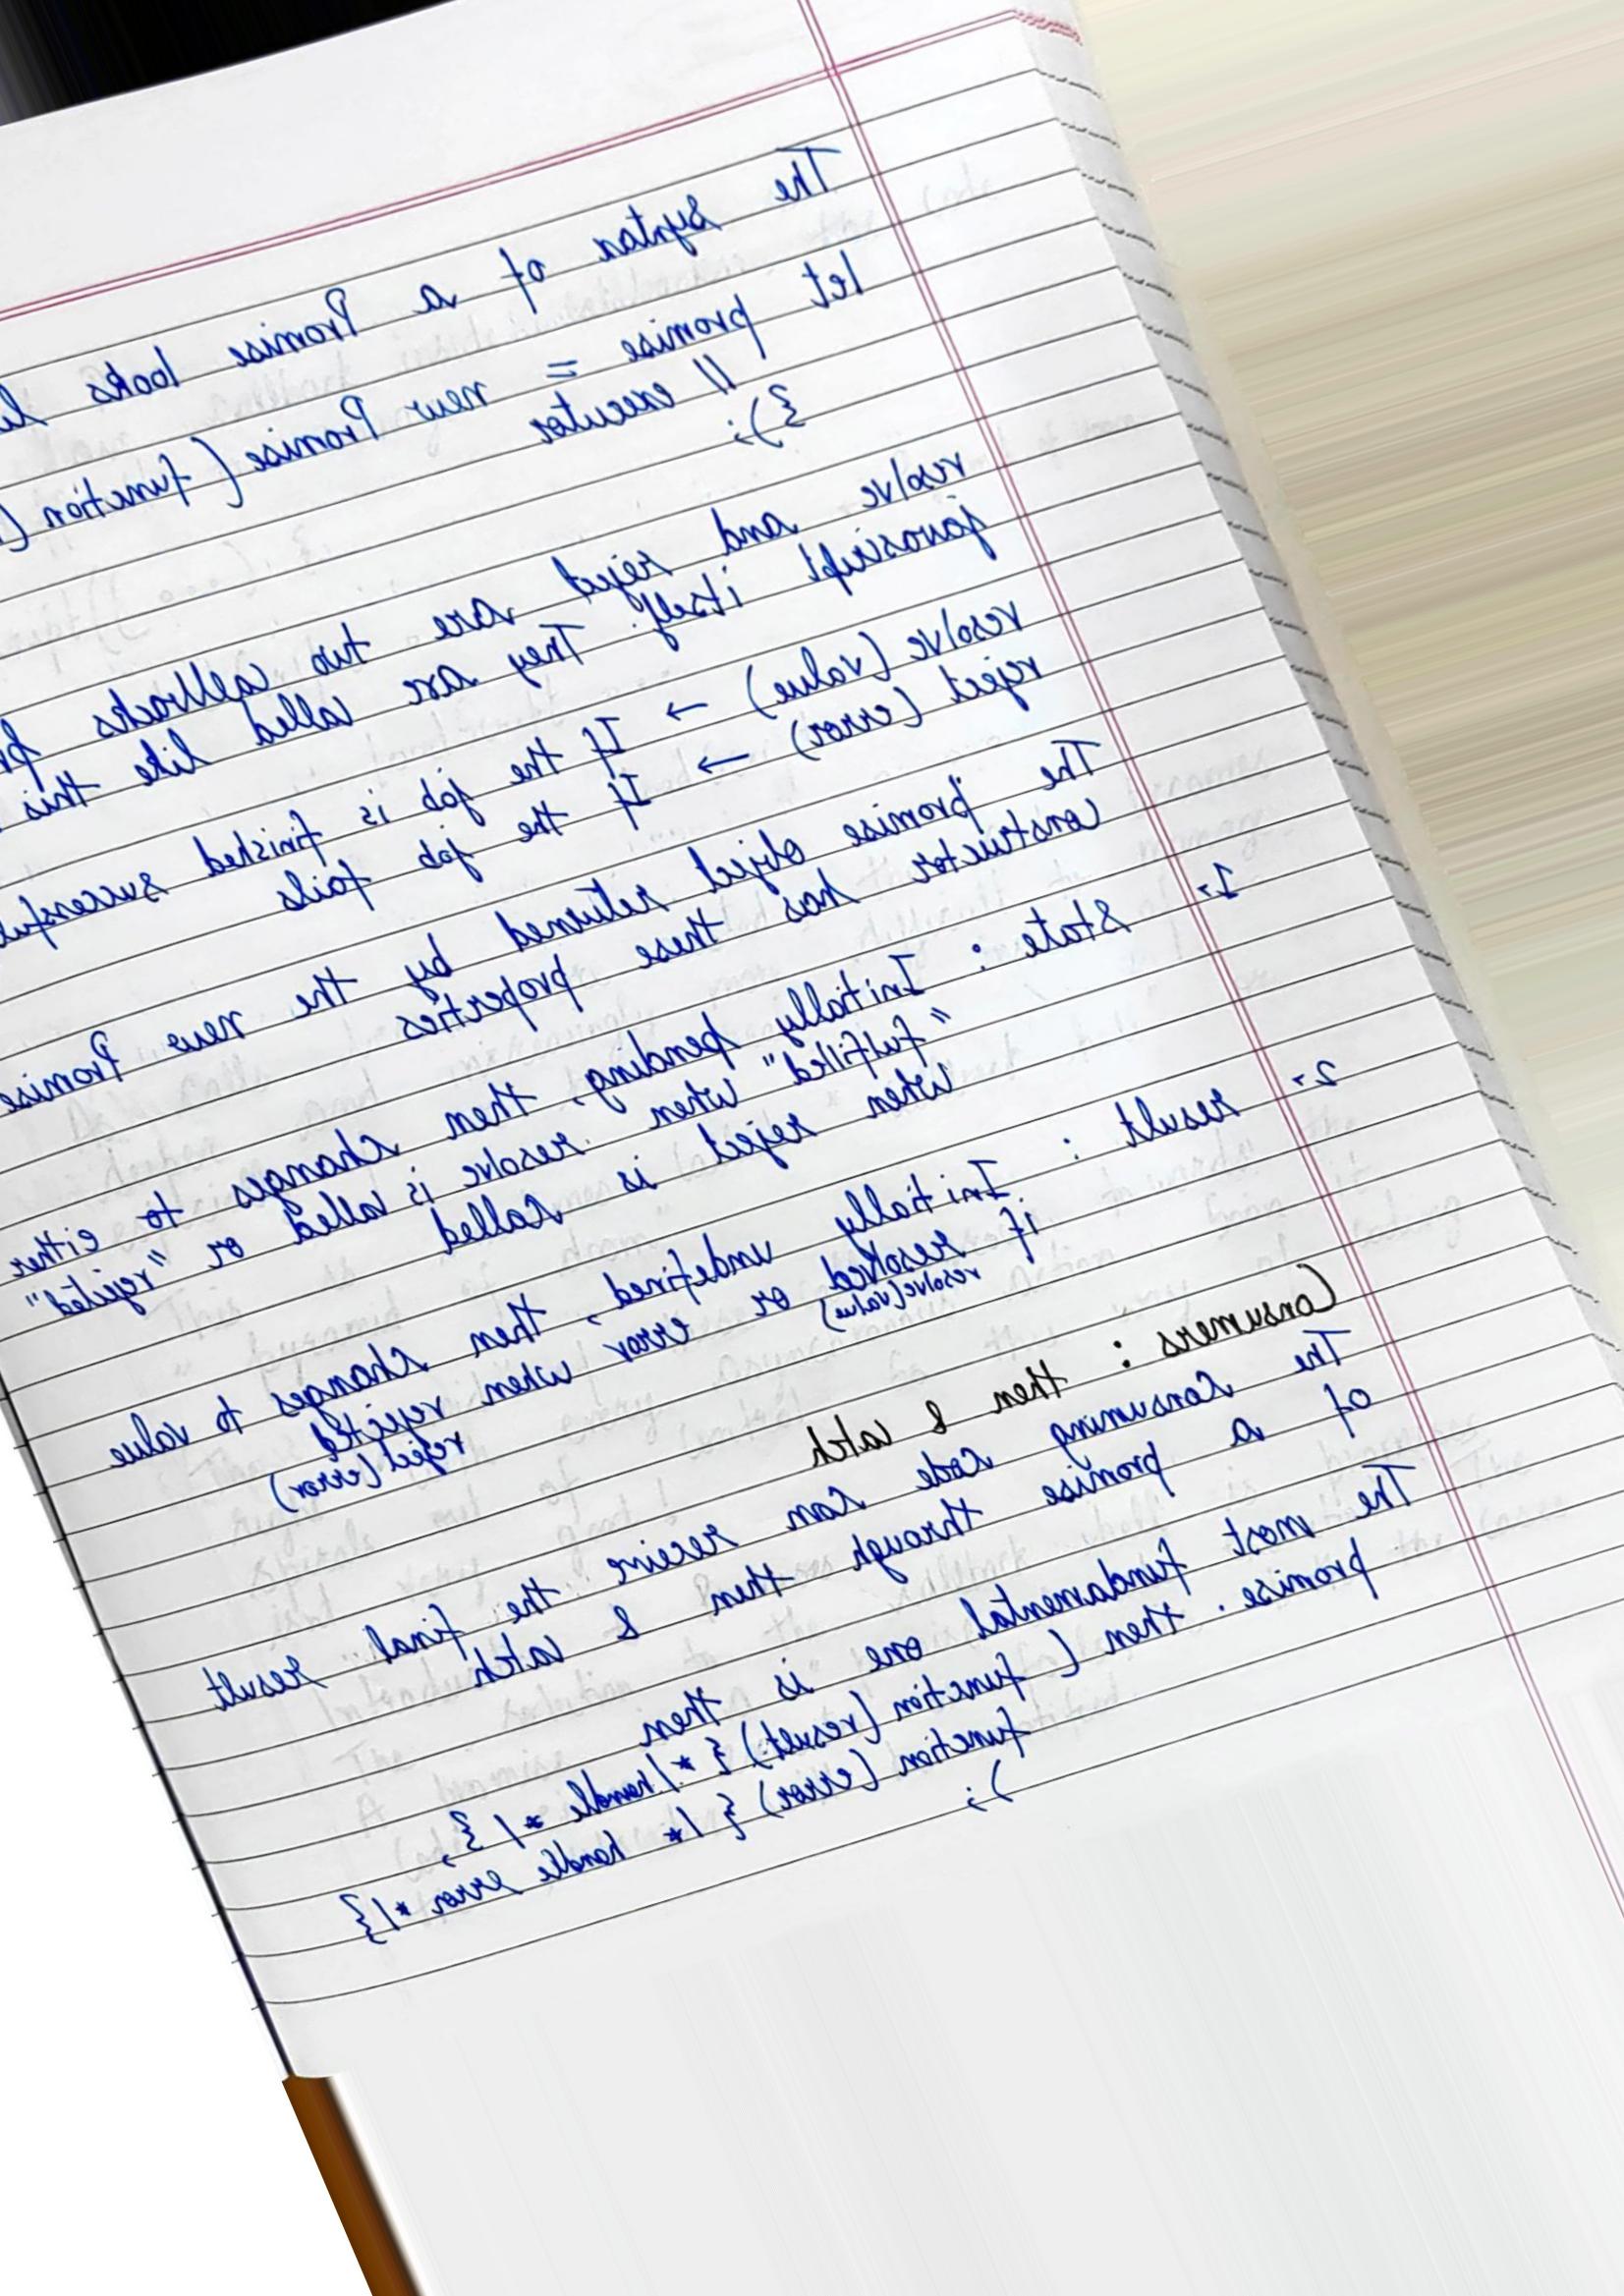 The Syntax of a Promise looks
let promise = new Promise (function (
// executor
});
resolve and reject are two callbacks
javascript itself. They are called like this
resolve (value) → If the job is finished successful
reject (error) → If the job fails
The promise object returned by the new Promise
constructor has these properties
1. State : Initially pending, then changes to either
"fulfilled" when resolve is called or "rejected"
when reject is called
2. result : Initially undefined, then changes to value
if resolved or error when rejected
resolve(value) reject(error)
Consumers : then & catch
The consuming code can receive the final result
of a promise through then & catch
The most fundamental one is then
promise . then ( function (result) { */handle */ },
function (error) { /* handle error */}
);